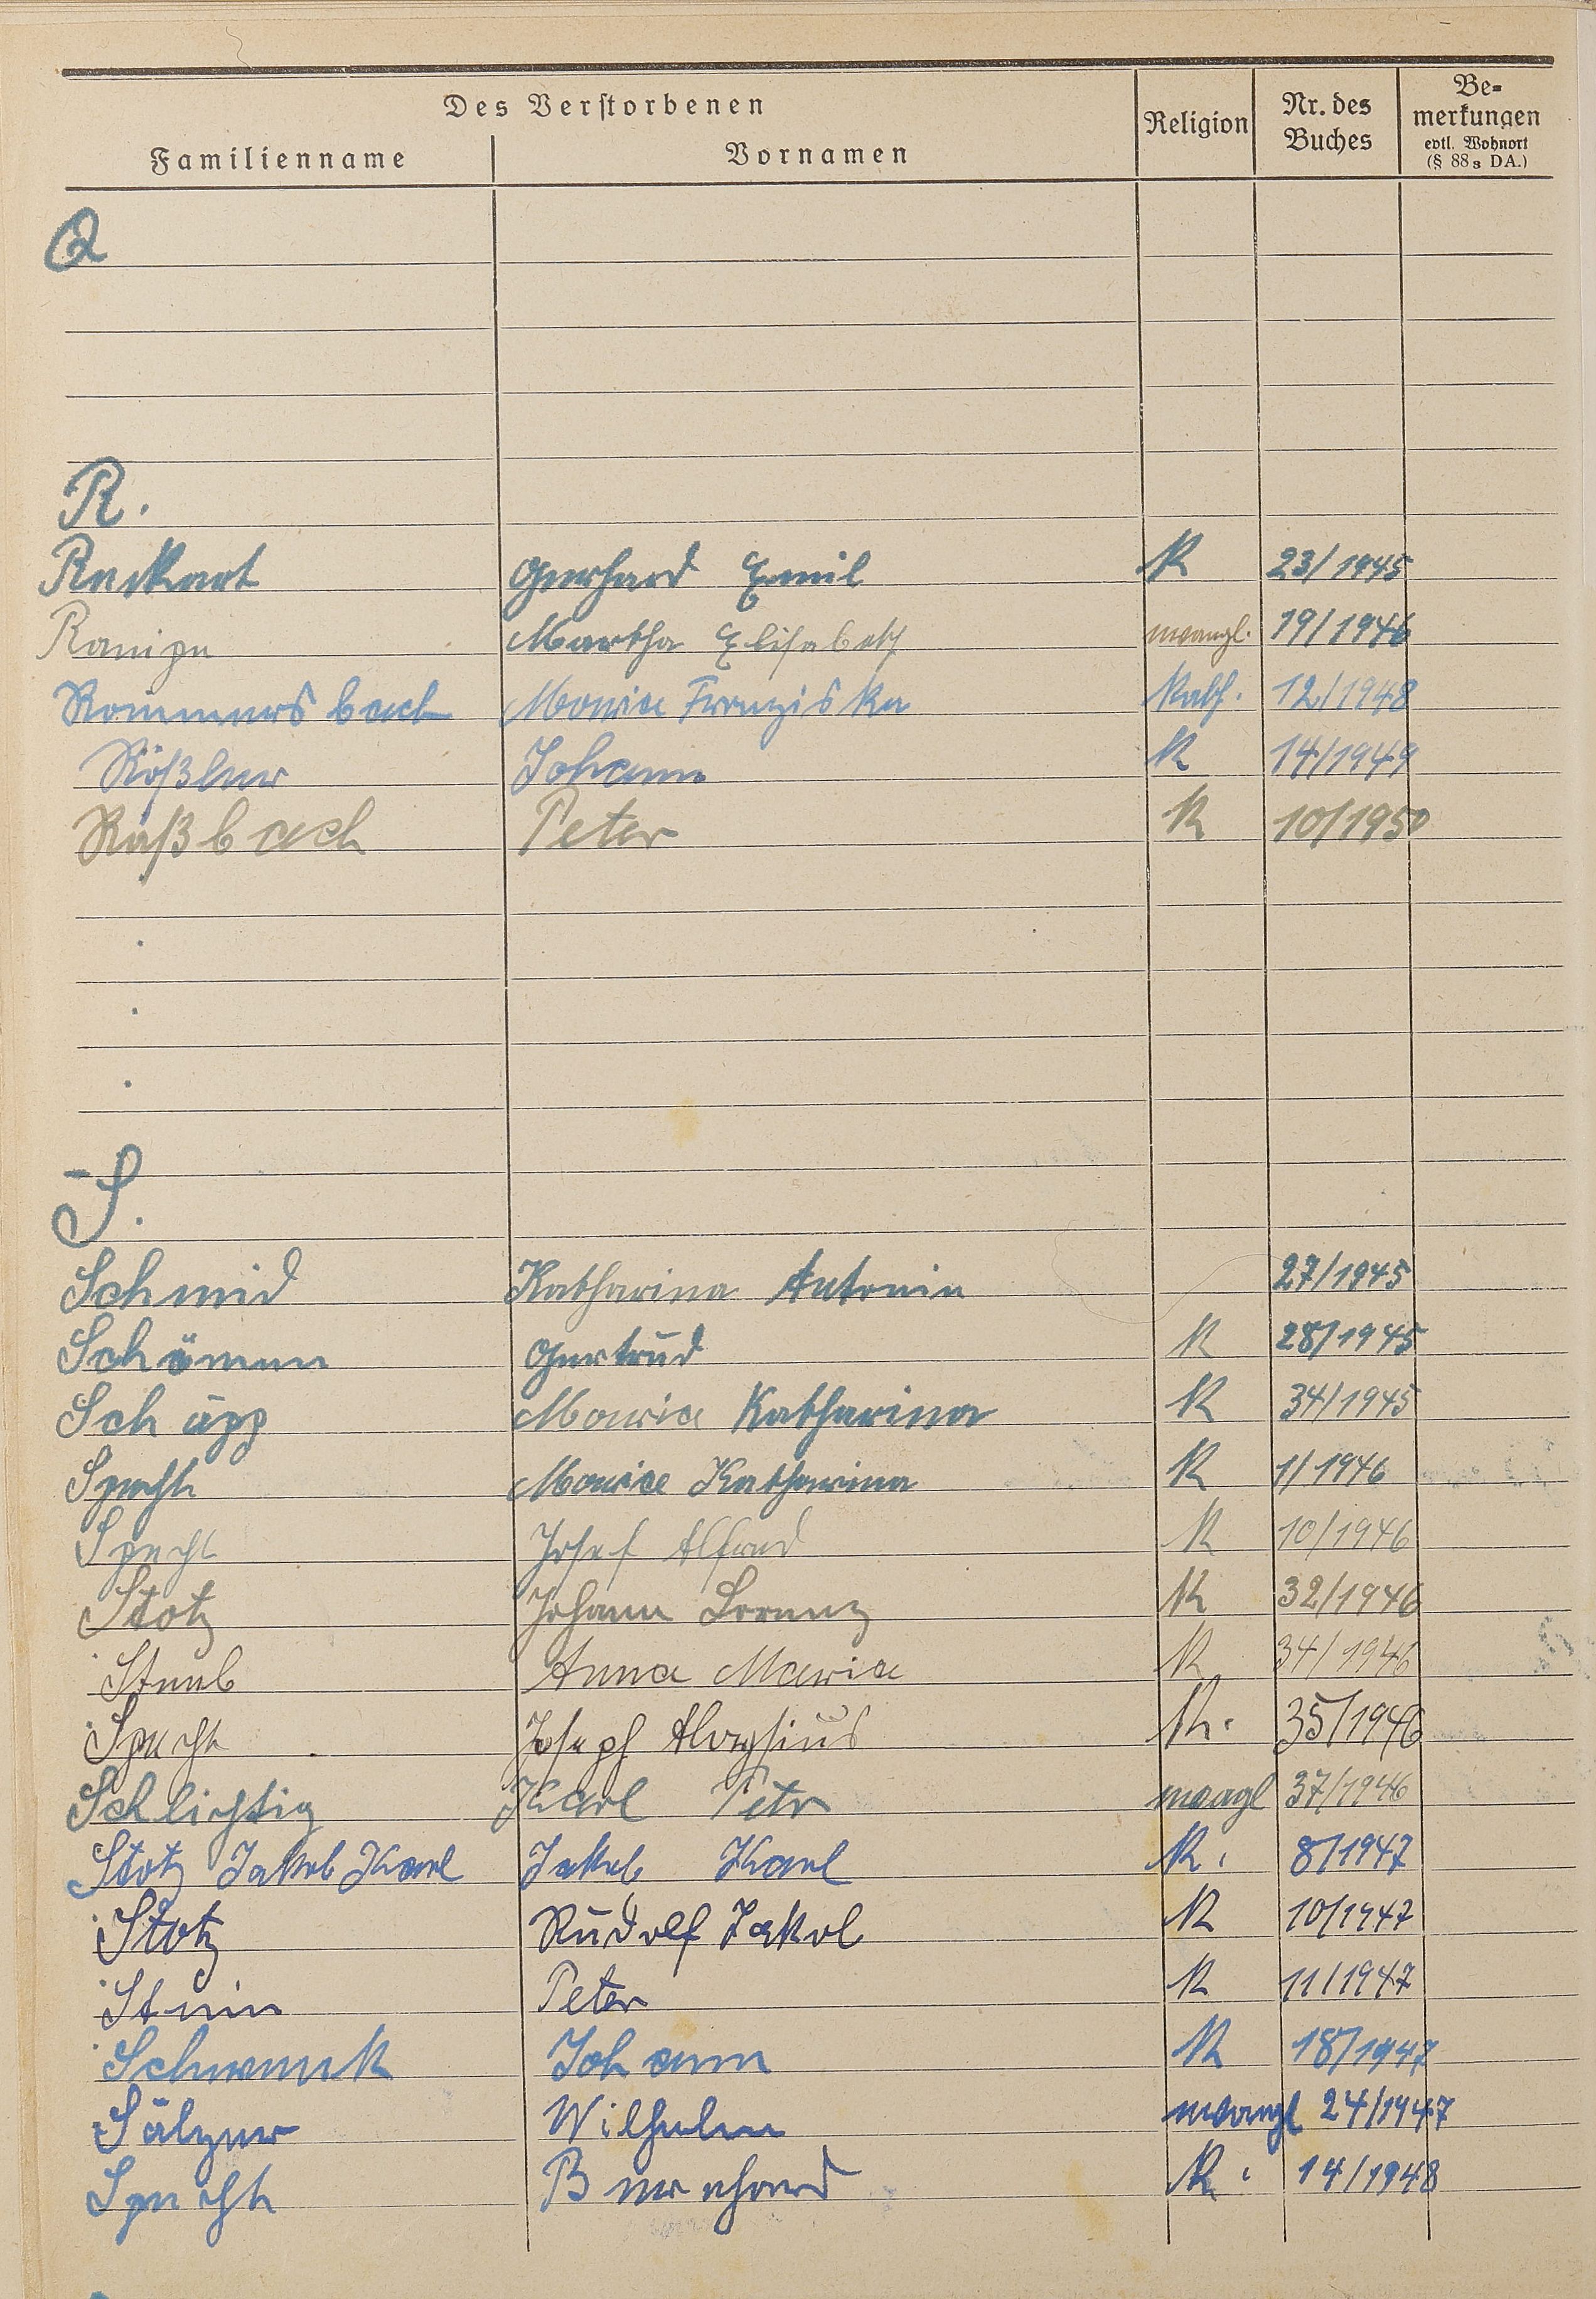 Des Verstorbenen
Familienname Vornamen Religion Nr. des Buches Be=merkungen evtl. Wohnort (§ 88 3 DA.)
Q
R.
Reckert Gerhard Emil K 23/1945
Martha Elisabeth evangl. 19/1946
Rommersbach Maria Franziska kath. 12/1948
Rößler Johann K 14/1949
Raßbach Peter K 10/1950
S.
Schmid Katharina Antonia 27/1945
Schömen Gertrud K 28/1945
Schäpp Maria Katharina K 34/1945
Specht Maria Katharina K 1/1946
Specht Josef Alfred K 10/1946
Stotz Johann Lorenz K 32/1946
Steeb Anna Maria K 34/1946
Specht Joseph Aloysius K. 35/1946
Schlichtig Karl Petr evagl 37/1946
Stotz Jakob Karl Jakob Karl K. 8/1947
Stotz Rudolf Jakob K 10/1947
Stein Peter K 11/1947
Schwenk Johann K 18/1947
Sälzer Wilhelm evangl 24/1947
Specht Bernhard K. 14/1948